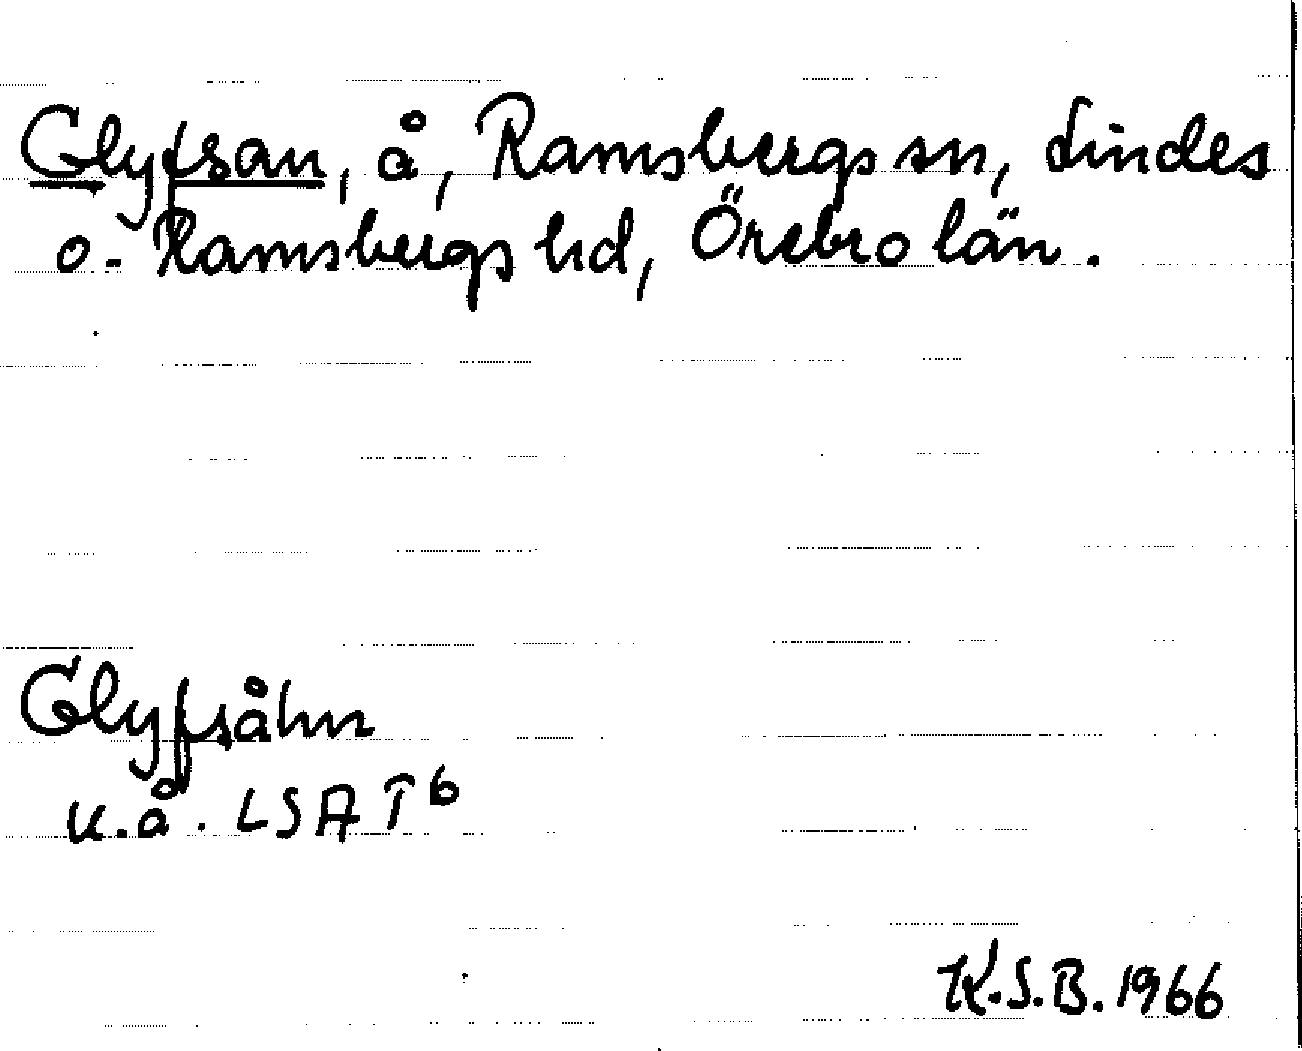 Glyfsan, å, Ramsbergs sn, Lindes
o. Ramsbergs hd, Örebro län.
Glyfsåhn
u.å. LSA T6
K.S.B. 1966